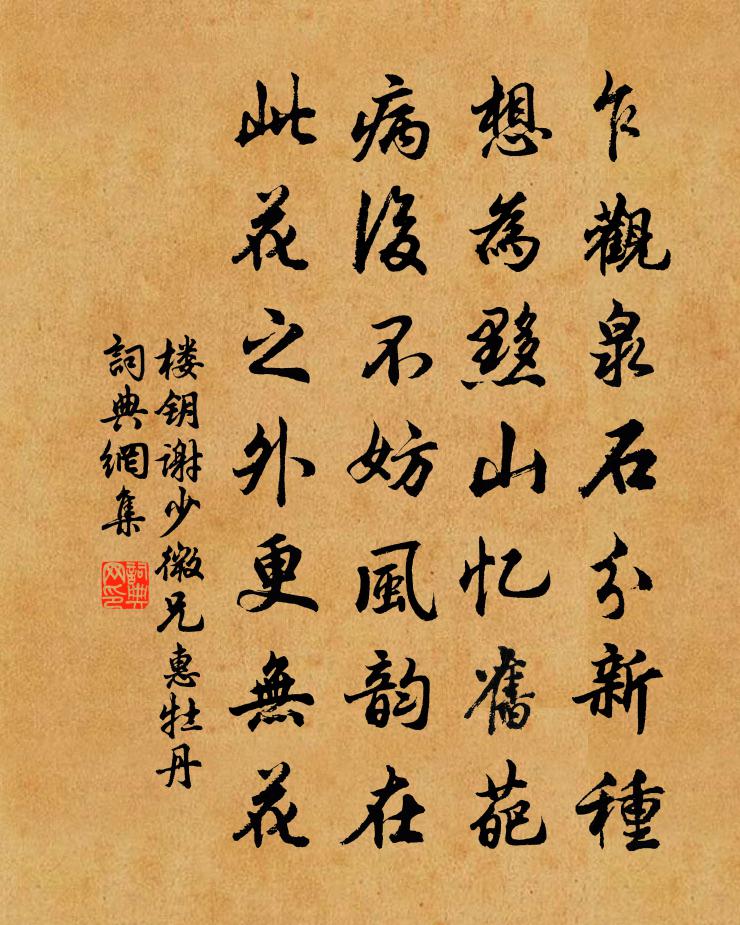 乍觀泉石分新種
想為黟山忆舊葩
病後不妨風韵在
此花之外更無花
楼钥谢少微兄惠牡丹
詞典網集
詞典網印